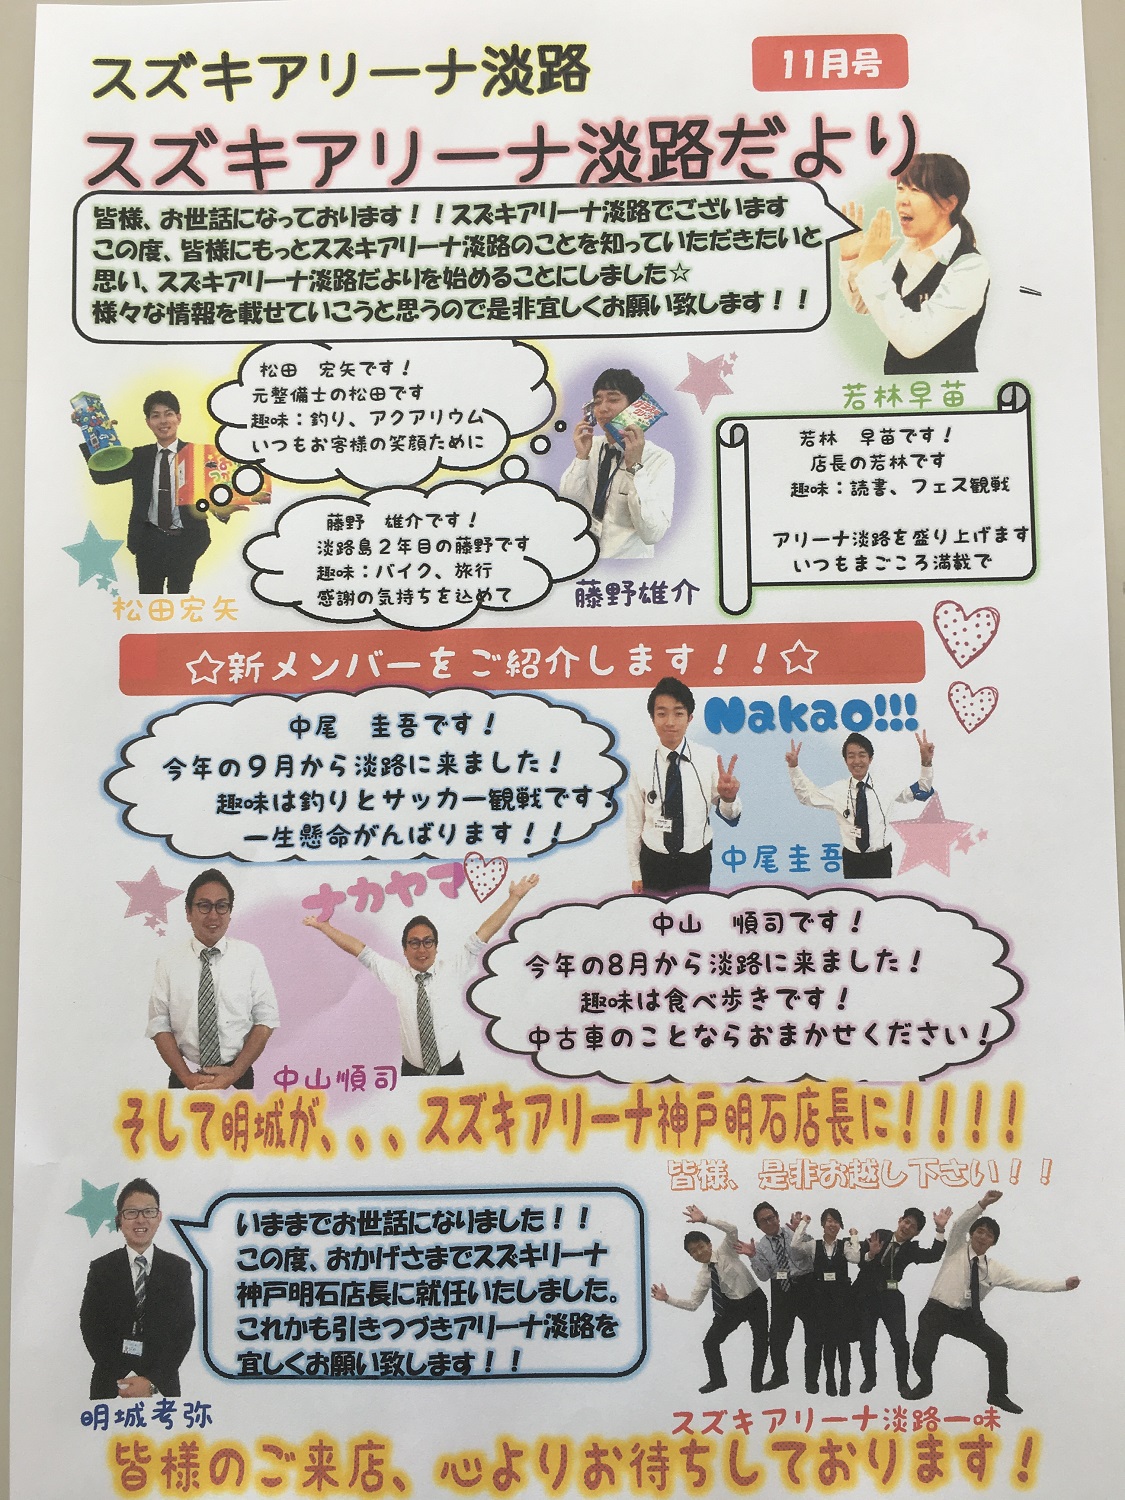 スズキアリーナ淡路
11月号
スズキアリーナ淡路だより
皆様、お世話になっております！！スズキアリーナ淡路でございます
この度、皆様にもっとスズキアリーナ淡路のことを知っていただきたいと
思い、スズキアリーナ淡路だよりを始めることにしました☆
様々な情報を載せていこうと思うので是非宜しくお願い致します！！
松田　宏矢です！
元整備士の松田です
趣味：釣り、アクアリウム
いつもお客様の笑顔ために
松田宏矢
藤野　雄介です！
淡路島２年目の藤野です
趣味：バイク、旅行
感謝の気持ちを込めて
藤野雄介
若林早苗
若林　早苗です！
店長の若林です
趣味：読書、フェス観戦
アリーナ淡路を盛り上げます
いつもまごころ満載で
☆新メンバーをご紹介します！！☆
中尾　圭吾です！
今年の９月から淡路に来ました！
趣味は釣りとサッカー観戦です！
一生懸命がんばります！！
Nakao!!!
中尾圭吾
ナカヤマ
中山順司
中山　順司です！
今年の8月から淡路に来ました！
趣味は食べ歩きです！
中古車のことならおまかせください！
そして明城が、、、スズキアリーナ神戸明石店長に！！！！
皆様、是非お越し下さい！！
いままでお世話になりました！！
この度、おかげさまでスズキリーナ
神戸明石店長に就任いたしました。
これかも引きつづきアリーナ淡路を
宜しくお願い致します！！
明城考弥
スズキアリーナ淡路一味
皆様のご来店、心よりお待ちしております！